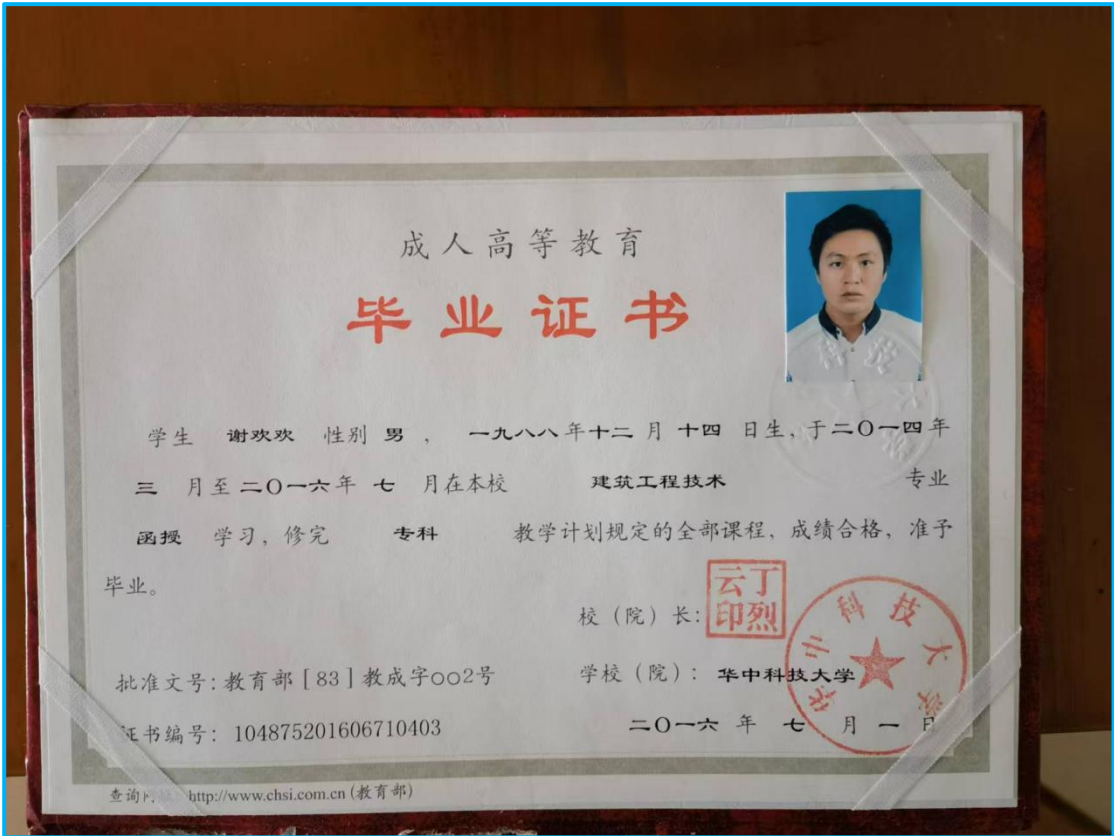 成人高等教育
毕业证书
学生 谢欢欢 性别 男 ， 一九八八年十二月十四日生，于二〇一四年
三 月至二〇一六年 七 月在本校 建筑工程技术 专业
函授 学习，修完 专科 教学计划规定的全部课程，成绩合格，准予
毕业。
校（院）长：
丁烈云印
批准文号：教育部［83］教成字002号
学校（院）：华中科技大学
华中科技大学
证书编号：104875201606710403
二〇一六年 七 月 一 日
查询网址：http://www.chsi.com.cn(教育部)